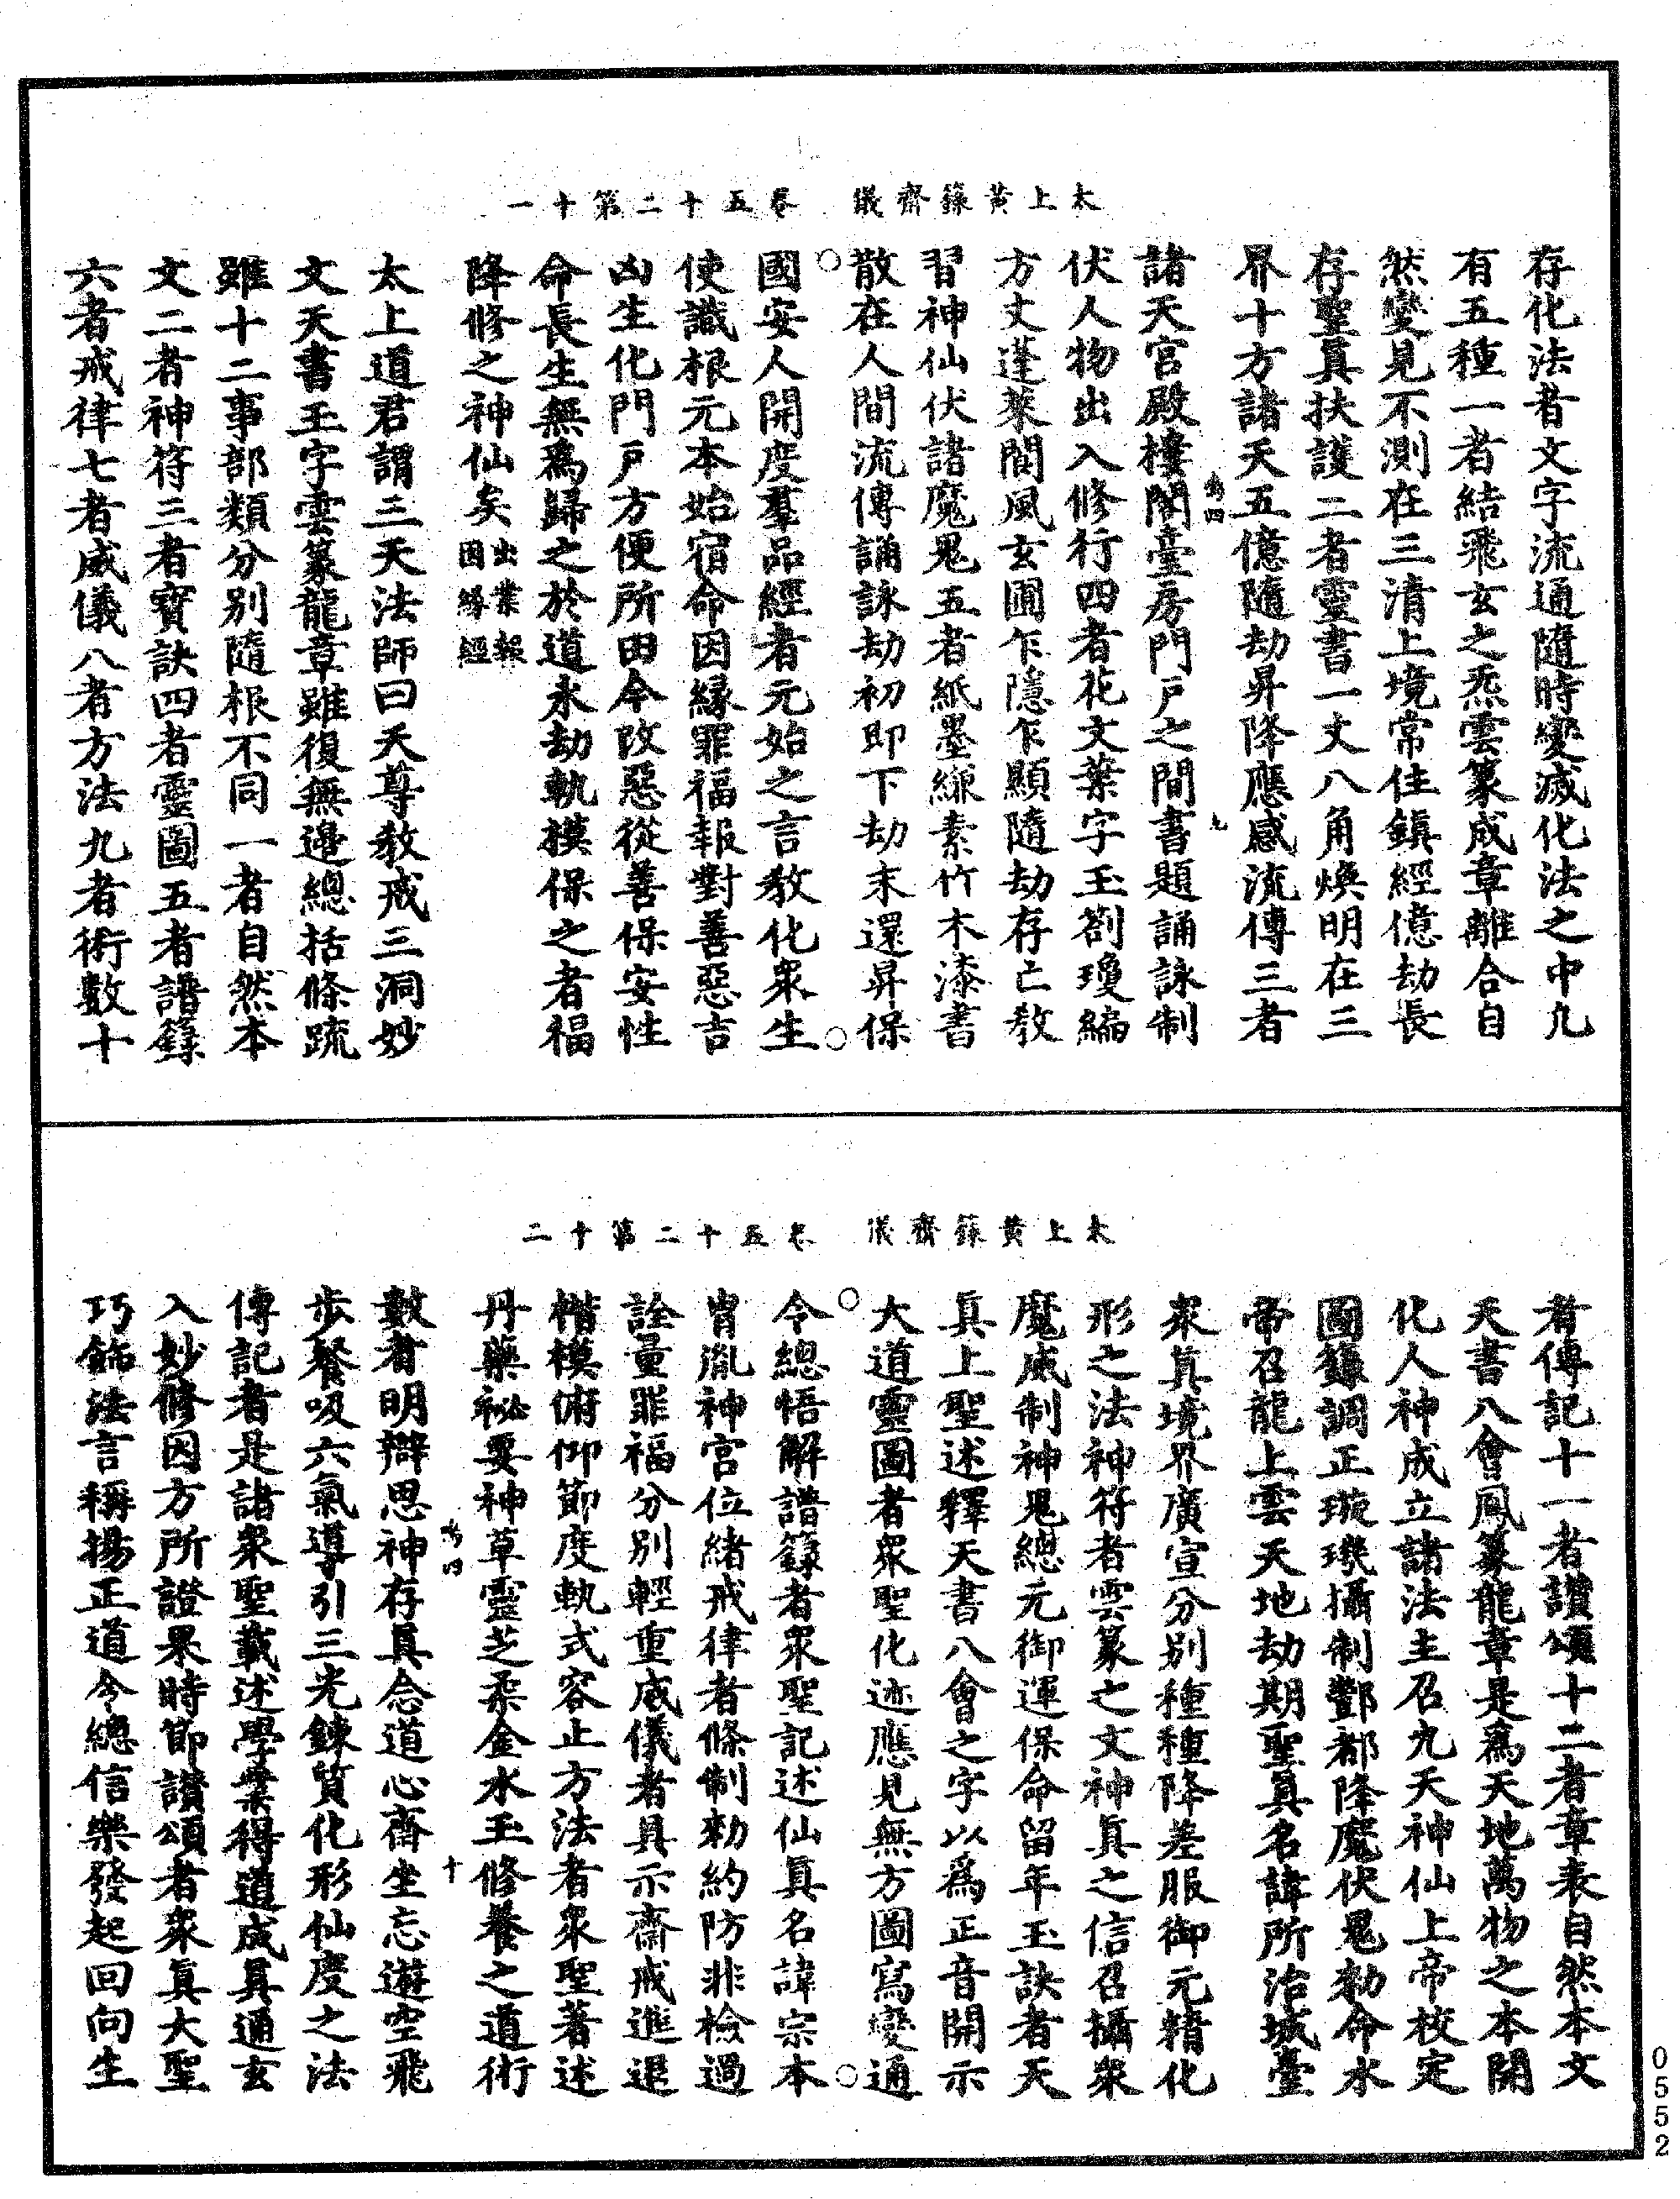 太上黃籙齋儀　卷五十二第十一
存化法者文字流通隨時變滅化法之中凡
有五種一者結飛玄之炁雲篆成章離合自
然變見不測在三清上境常住鎮經億劫長
存聖真扶護二者靈書一丈八角煥明在三
界十方諸天五億隨劫昇降應感流傳三者
諸天宮殿樓閣臺房門戶之間書題誦詠制
伏人物出入修行四者花文葉字玉劄瓊編
方丈蓬萊閬風玄圃乍隱乍顯隨劫存亡教
習神仙伏諸魔鬼五者紙墨縑素竹木漆書
散在人間流傳誦詠劫初即下劫末還昇保
國安人開度羣品經者元始之言教化衆生
使識根元本始宿命因緣罪福報對善惡吉
凶生化門戶方便所由令改惡從善保安性
命長生無爲歸之於道永劫軌模保之者福
降修之神仙矣出業報因緣經
太上道君謂三天法師曰天尊教戒三洞妙
文天書玉字雲篆龍章雖復無邊總括條疏
雖十二事部類分別隨根不同一者自然本
文二者神符三者寶訣四者靈圖五者譜籙
六者戒律七者威儀八者方法九者術數十
太上黃籙齋儀　卷五十二第十二
者傳記十一者讚頌十二者章表自然本文
天書八會鳳篆龍章是爲天地萬物之本開
化人神成立諸法主召九天神仙上帝校定
圖籙調正璇璣攝制酆都降魔伏鬼勑命水
帝召龍上雲天地劫期聖真名諱所治城臺
衆真境界廣宣分別種種降差服御元精化
形之法神符者雲篆之文神真之信召攝衆
魔威制神鬼總元御運保命留年玉訣者天
真上聖述釋天書八會之字以爲正音開示
大道靈圖者衆聖化迹應見無方圖寫變通
令總悟解譜籙者衆聖記述仙真名諱宗本
胄胤神宮位緒戒律者條制勑約防非檢過
詮量罪福分別輕重威儀者具示齋戒進退
楷模俯仰節度軌式容止方法者衆聖著述
丹藥祕要神草靈芝柔金水玉修養之道術
數者明辯思神存真念道心齋坐忘遊空飛
步餐吸六氣導引三光鍊質化形仙度之法
傳記者是諸衆聖載述學業得道成真通玄
入妙修因方所證果時節讚頌者衆真大聖
巧飾法言稱揚正道令總信樂發起回向生
0552